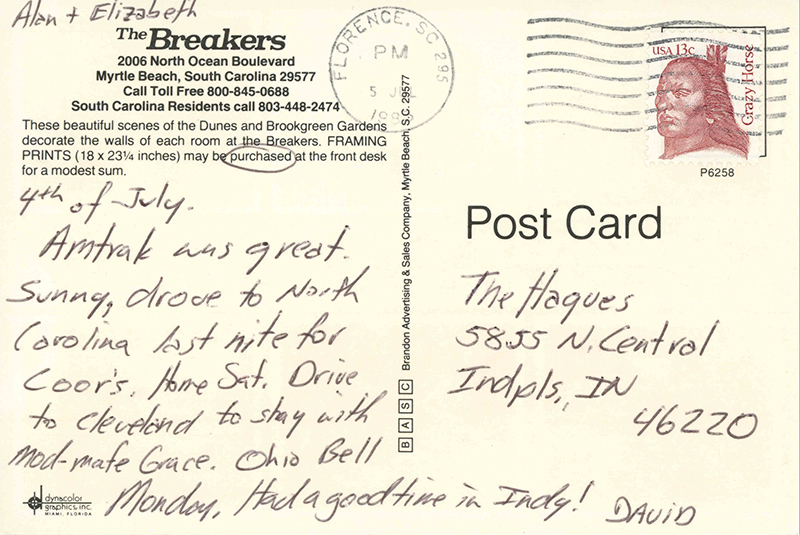 Alan + Elizabeth
The Breakers
2006 North Ocean Boulevard
Myrtle Beach, South Carolina 29577
Call Toll Free 800-845-0688
South Carolina Residents call 803-448-2474
These beautiful scenes of the Dunes and Brookgreen Gardens
decorate the walls of each room at the Breakers. FRAMING
PRINTS (18 x 23¼ inches) may be purchased at the front desk
for a modest sum.
4th of July.
Amtrak was great.
Sunny, drove to North
Carolina last nite for
Coor's. Home Sat. Drive
to Cleveland to stay with
Mod-mate Grace. Ohio Bell
Monday. Had a good time in Indy! DAVID
dynacolor
graphics, inc.
MIAMI, FLORIDA
BASC Brandon Advertising & Sales Company, Myrtle Beach, S.C. 29577
FLORENCE, SC 295
PM
5
USA 13c
Crazy Horse
P6258
Post Card
The Hagues
5855 N. Central
Indpls., IN
46220